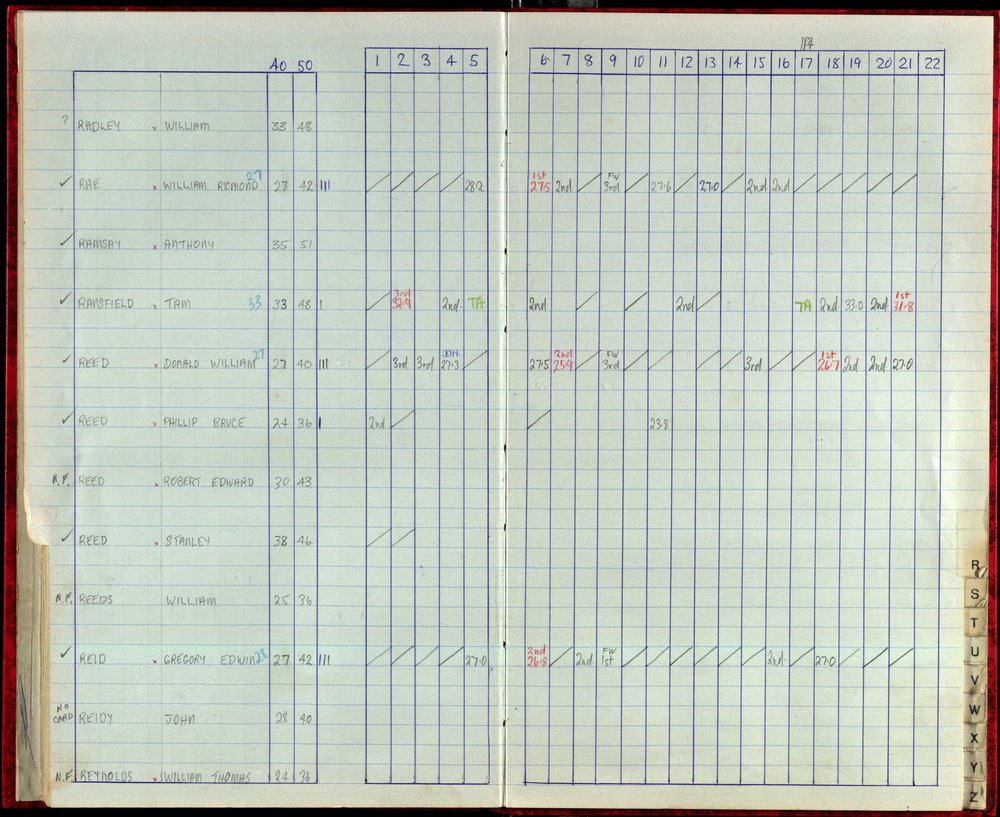 1 Pt
40 50 1 2 3 4 5 6 7 8 9 10 11 12 13 14 15 16 17 18 19 20 21 22
? RADLEY x WILLIAM 33 48
✓ RAE x WILLIAM RICMOND 27 27 42 III / / / / 28.2 1st 27.5 2nd / FW 3rd / 27.6 / 27.0 / 2nd 2nd / / / / /
✓ RAMSAY x ANTHONY 35 51
✓ RANSFIELD x TAM 33 33 48 I / 3rd 32.9 2nd TA 2nd / / 2nd / TA 2nd 33.0 2nd 1st 31.8
✓ REED x DONALD WILLIAM 27 27 40 III / 3rd 3rd D.H. 27.3 / 27.5 2nd 25.9 / FW 3rd / / / / / 3rd / / 1st 26.7 2nd 2nd 27.0
✓ REED x PHILLIP BRUCE 24 36 I 2nd / / 23.8
N.F. REED x ROBERT EDWARD 30 43
✓ REED x STANLEY 38 46 / /
N.F. REEDS WILLIAM 25 36
✓ REID x GREGORY EDWIN 28 27 42 III / / / / 27.0 2nd 26.8 / 2nd FW 1st / / / / / / 2nd / 27.0 / / /
NO CARD REIDY JOHN 28 40
N.F. REYNOLDS x WILLIAM THOMAS 24 36
R
S
T
U
V
W
X
Y
Z